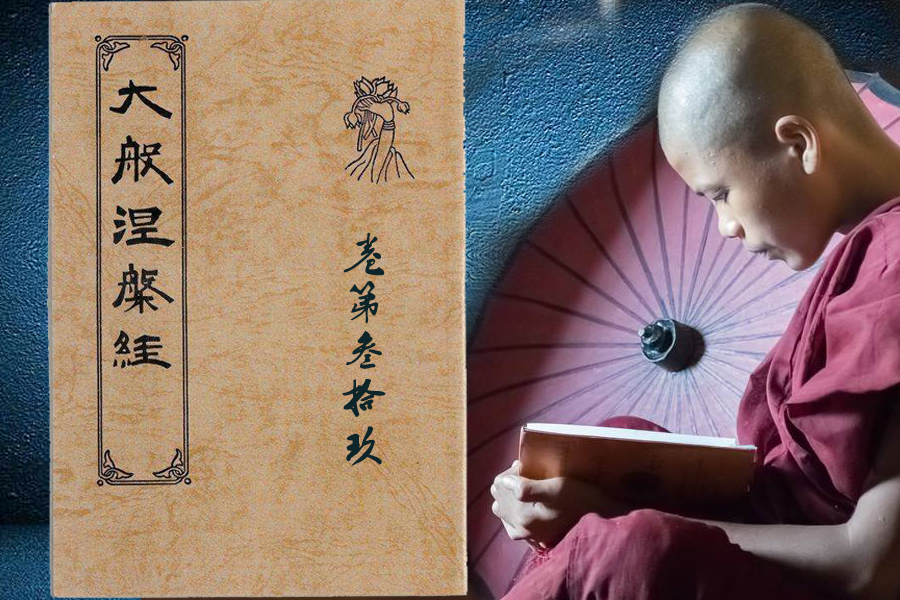 大般涅槃経
卷第叁拾玖